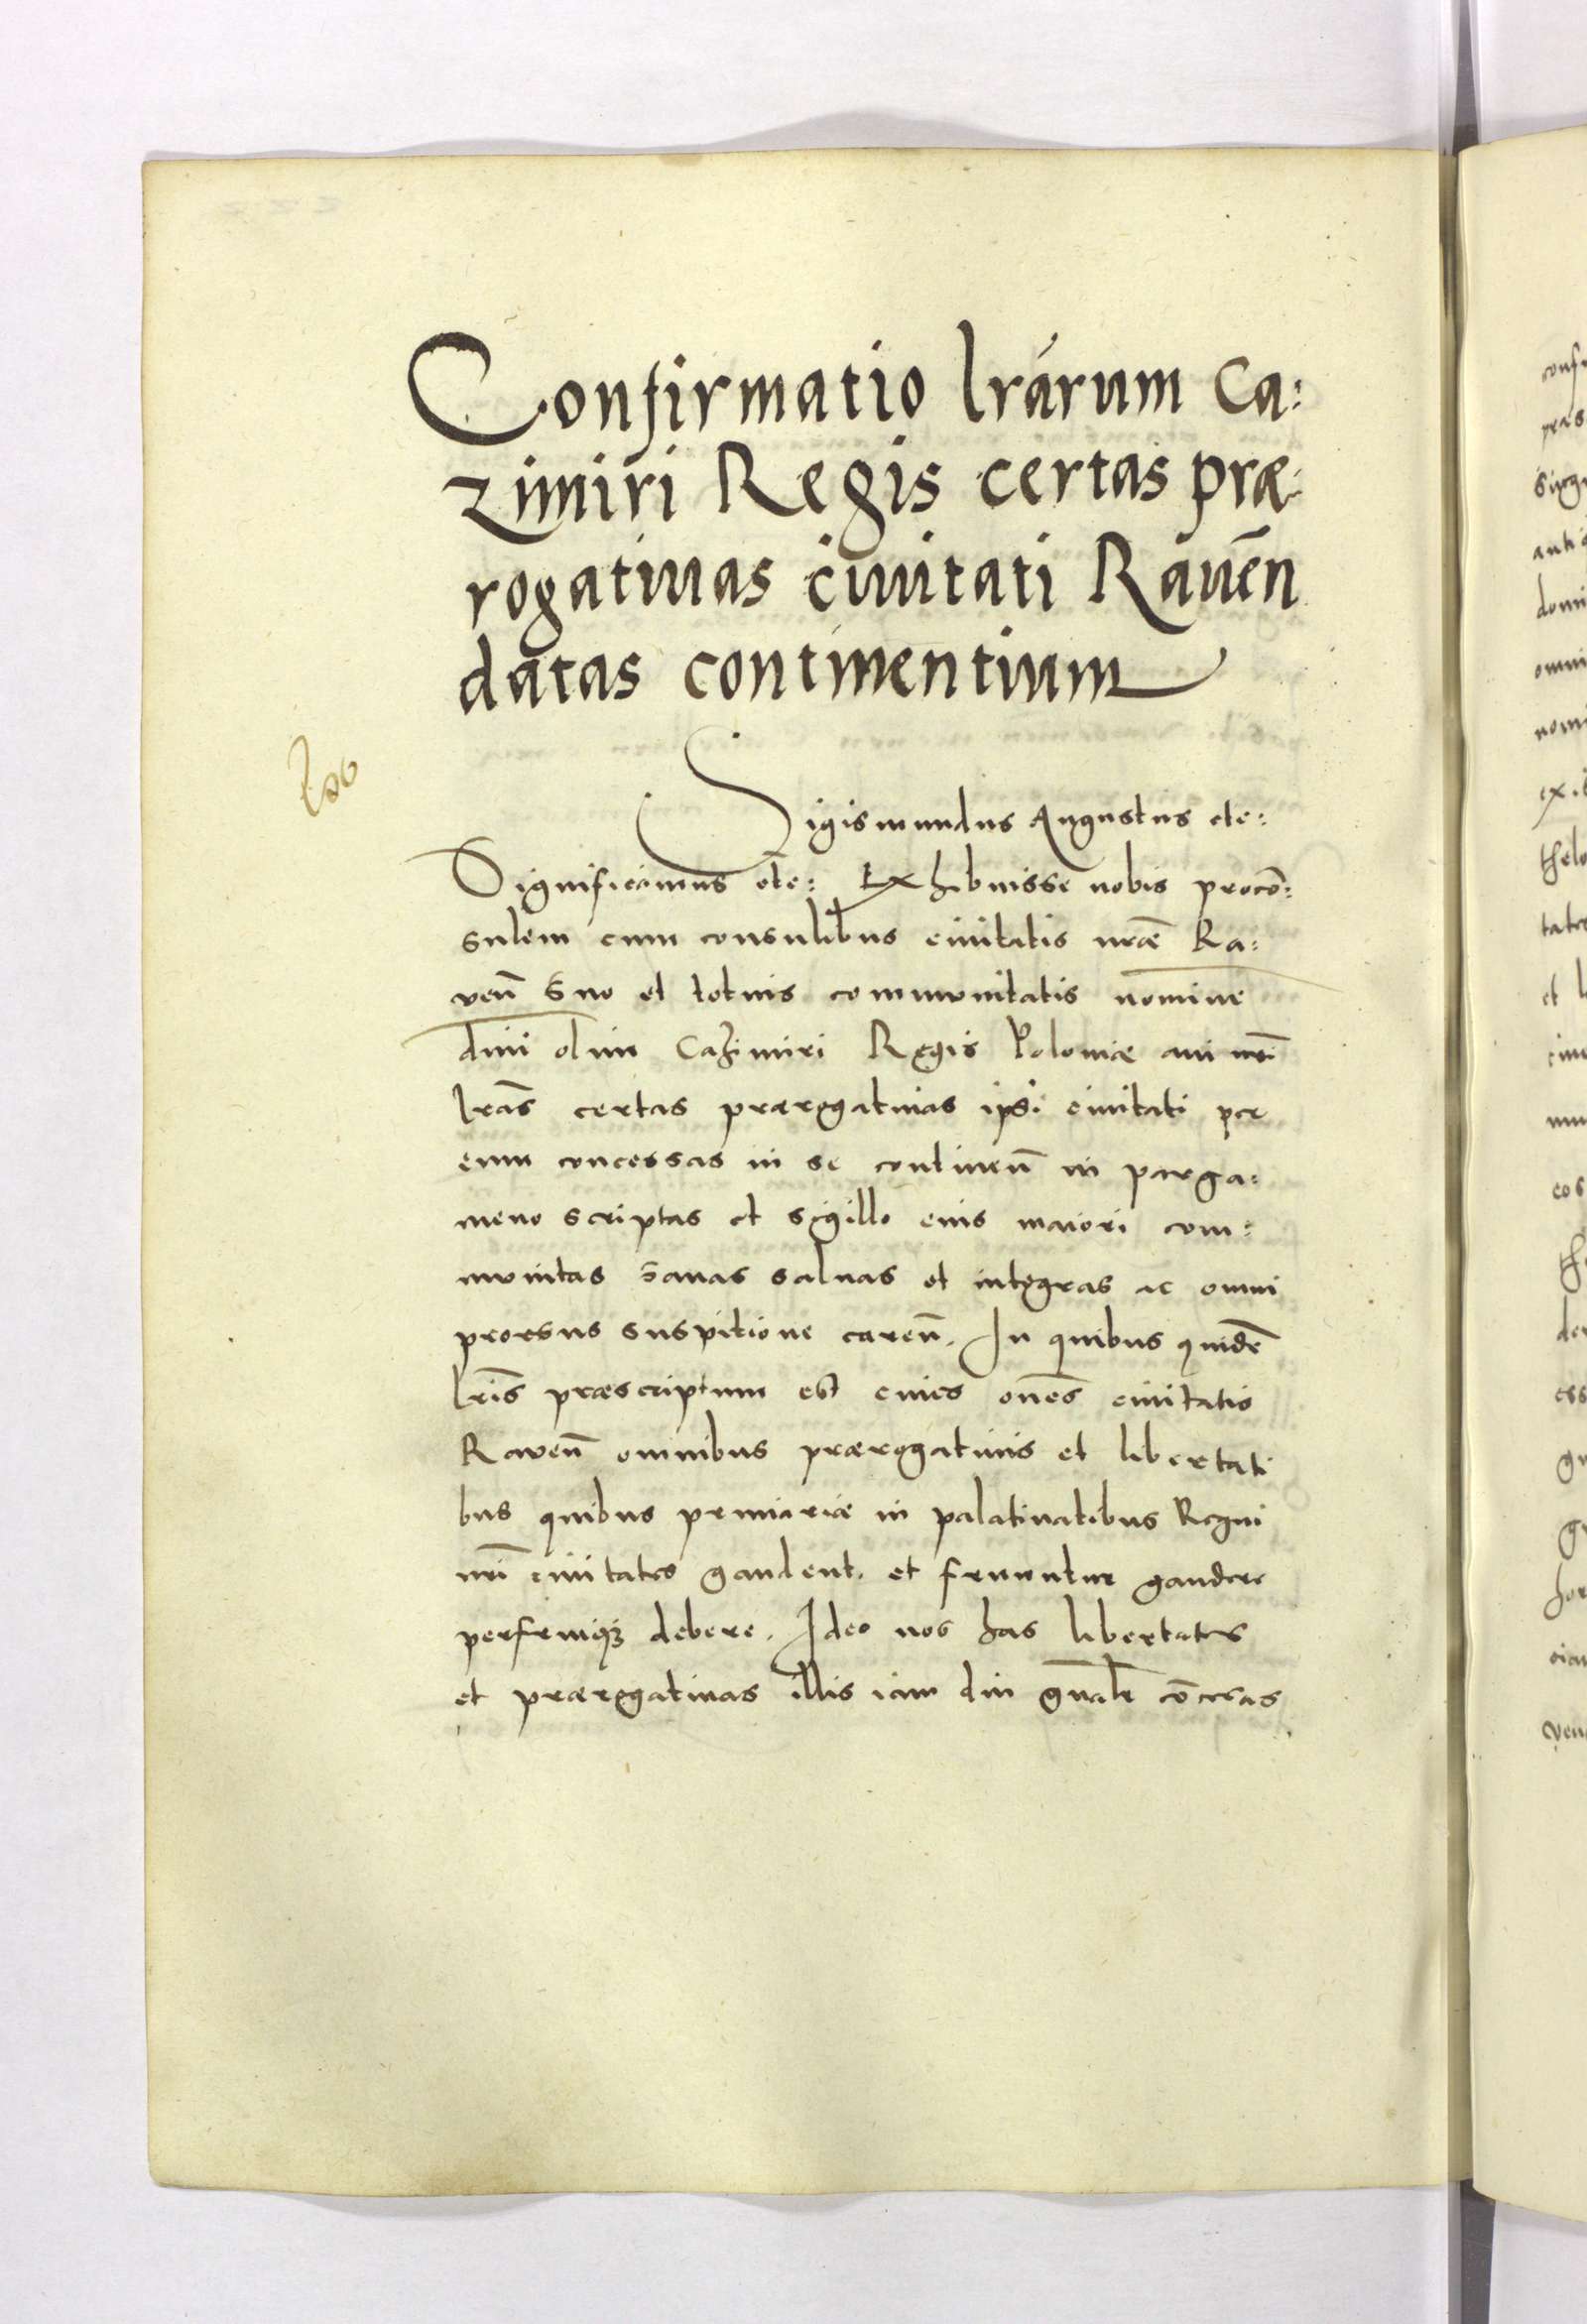 Confirmatio lrarum Ca:
zimiri Regis certas præ:
rogatiuas ciuitati Rauen̄
datas continentium
Sigismundus Augustus etc:
Significamus etc: Exhibuisse nobis procō:
sulem cum consulibus ciuitatis nr̄æ Ra:
uen̄ suo et totius communitatis nomine
diui olim Cazimiri Regis Poloniæ aui nr̄i
lr̄as certas prærogatiuas ipsi ciuitati per
eum concessas in se continen̄ in parga:
meno scriptas et sigillo eius maiori com:
munitas sanas saluas et integras ac omni
prorsus suspitione caren̄. In quibus quidē
lr̄is præscriptum est ciues om̄es ciuitatis
Rauen̄ omnibus prærogatiuis et libertati
bus quibus primariæ in palatinatibus Regni
nr̄i ciuitates gaudent et fruuntur gaudere
perfruiq3 debere. Ideo nos has libertates
et prærogatiuas illis iam diu gn̄alr̄